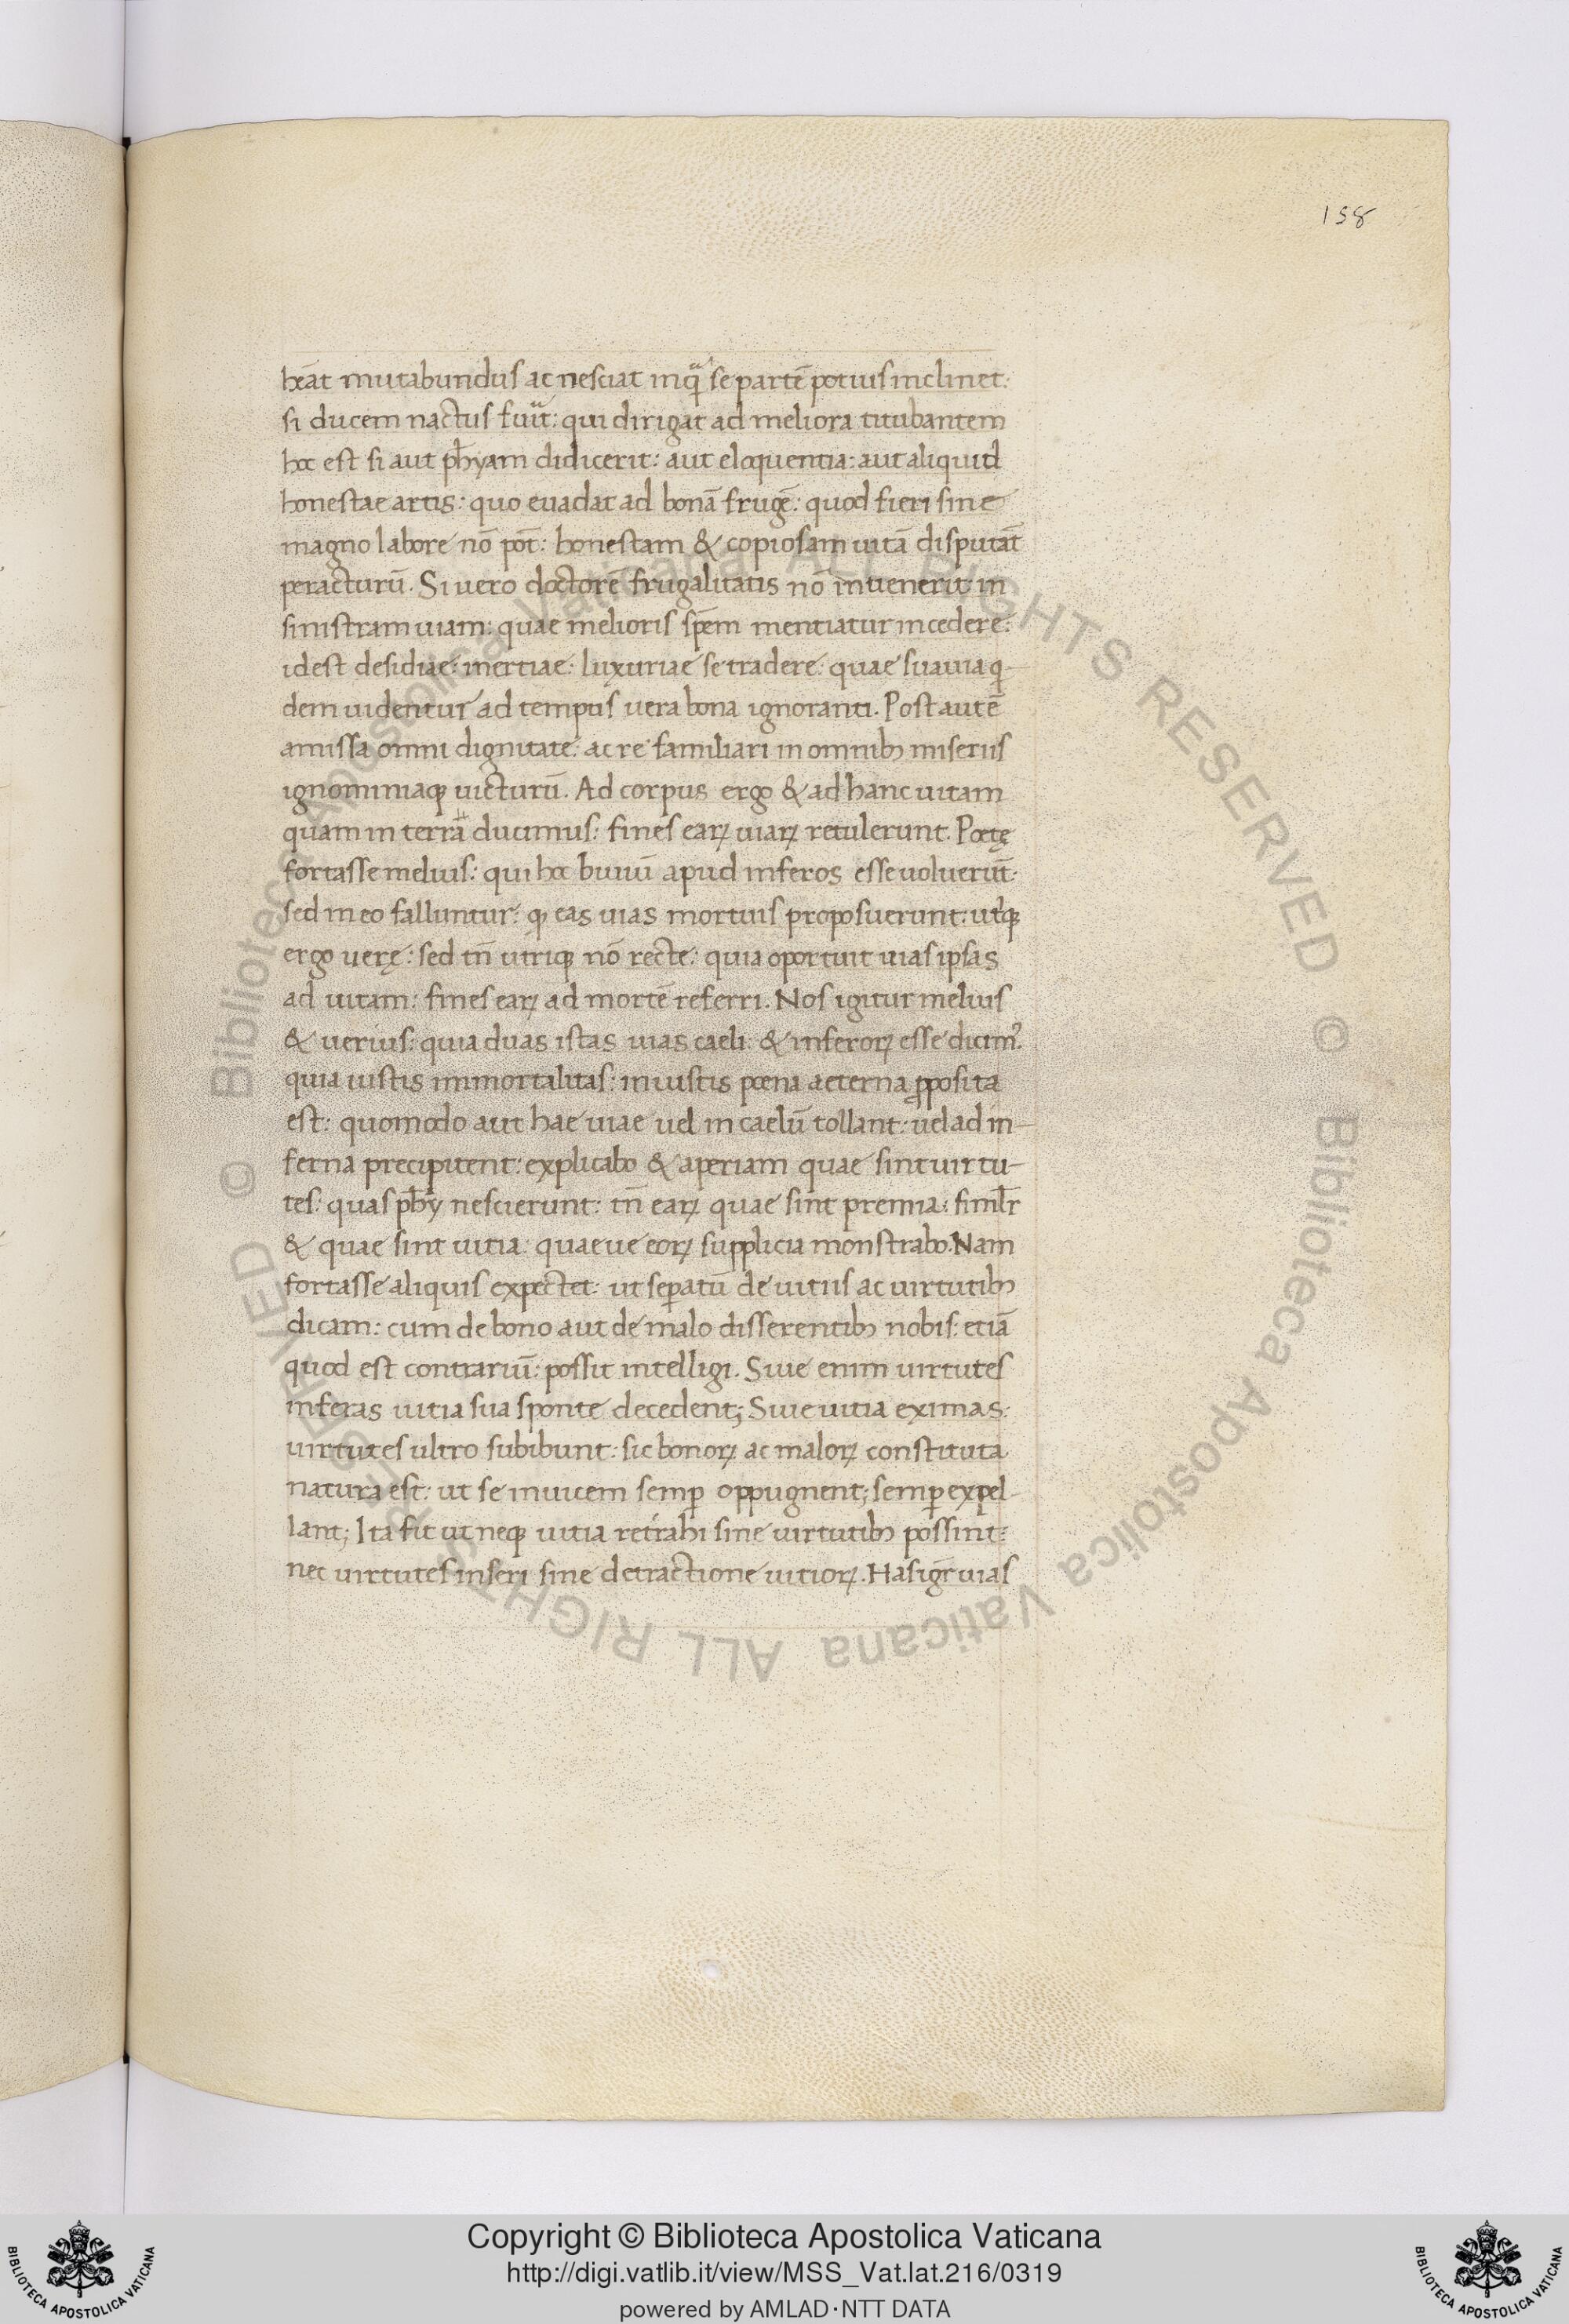 158
hęat mutabundus ac nesciat inqͣ se partē potius inclinet:
si ducem nactus fuͣit: qui dirigat ad meliora titubantem
hoc est si aut ph̄yam didicerit: aut eloquentia: aut aliquid
honestae artis: quo euadat ad bonā frugē: quod fieri sine
magno labore nō pōt: honestam & copiosam uitā disputāt
peracturū. Si uero doctorē frugalitatis nō inuenerit: in
sinistram uiam: quae melioris spēm mentiatur incedere:
idest desidiae: inertiae: luxuriae se tradere: quae suauia qͥ-
dem uidentur ad tempus uera bona ignoranti. Post autē
amissa omni dignitate: ac re familiari in omnibꝫ miseriis
ignominiaqꝫ uicturū. Ad corpus ergo & ad hanc uitam
quam in terrā ducimus: fines eaꝝ uiaꝝ retulerunt. Poetę
fortasse melius: qui hoc biuiū apud inferos esse uoluerūt:
sed in eo falluntur: qꝫ eas uias mortuis proposuerunt: utͥqꝫ
ergo uerę: sed tn̄ utrique nō recte: quia oportuit uias ipsas
ad uitam: fines eaꝝ ad mortē referri. Nos igitur melius
& uerius: quia duas istas uias caeli & inferoꝝ esse dicimꝰ.
quia iustis immortalitas: iniustis poena aeterna ꝓposita
est: quomodo aut hae uiae uel in caelū tollant: uel ad in-
ferna precipitent: explicabo & aperiam quae sint uirtu-
tes: quas ph̄y nescierunt: tn̄ eaꝝ quae sint premia: simlr̄
& quae sint uitia: quaeue eoꝝ supplicia monstrabo. Nam
fortasse aliquis expectet: ut seꝑatū de uitiis ac uirtutibꝫ
dicam: cum de bono aut de malo disserentibꝫ nobis: etiā
quod est contrariū: possit intelligi. Siue enim uirtutes
inferas uitia sua sponte decedent; Siue uitia eximas:
uirtutes ultro subibunt: sic bonoꝝ ac maloꝝ constituta
natura est: ut se inuicem semꝑ oppugnent; semꝑ expel-
lant; Ita fit ut neqꝫ uitia retrahi sine uirtutibꝫ possint:
nec uirtutes inseri sine detractione uitioꝝ. Has igr̄ uias
© Biblioteca Apostolica Vaticana ALL RIGHTS RESERVED
© Biblioteca Apostolica Vaticana ALL RIGHTS RESERVED
BIBLIOTECA APOSTOLICA VATICANA
Copyright © Biblioteca Apostolica Vaticana
http://digi.vatlib.it/view/MSS_Vat.lat.216/0319
powered by AMLAD·NTT DATA
BIBLIOTECA APOSTOLICA VATICANA